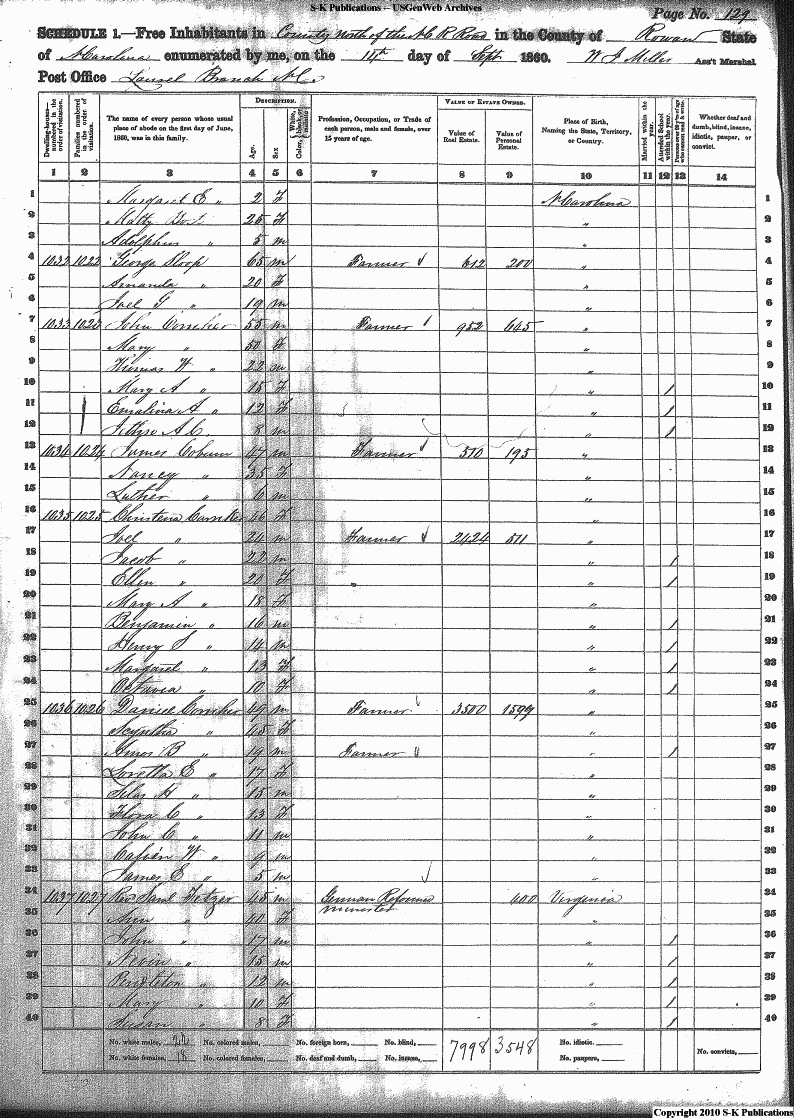 S-K Publications -- USGenWeb Archives
Page No. 129
SCHEDULE 1.—Free Inhabitants in County North of the N C R Road in the County of Rowan State
of N Carolina enumerated by me, on the 14th day of Sept 1860. W J Miller Ass't Marshal
Post Office Laurel Branch N C.
Dwelling-houses—numbered in the order of visitation.
Families numbered in the order of visitation.
The name of every person whose usual place of abode on the first day of June, 1860, was in this family.
DESCRIPTION.
Age.
Sex
Color, White, black, or mulatto
Profession, Occupation, or Trade of each person, male and female, over 15 years of age.
VALUE OF ESTATE OWNED.
Value of Real Estate.
Value of Personal Estate.
Place of Birth, Naming the State, Territory, or Country.
Married within the year.
Attended School within the year.
Persons over 20 y'rs of age who cannot read & write.
Whether deaf and dumb, blind, insane, idiotic, pauper, or convict.
1 2 3 4 5 6 7 8 9 10 11 12 13 14
1 Margaret E " 2 F N Carolina 1
2 Matty 25 F " 2
3 Adolphus " 5 m " 3
4 1032 1022 George Sloop 65 m Farmer 612 200 " 4
5 Amanda " 20 F " 5
6 Joel G " 19 m " 6
7 1033 1023 John Corriher 55 m Farmer 952 645 " 7
8 Mary " 50 F " 8
9 Thomas W " 22 m " 9
10 Mary A " 15 F " / 10
11 Emaline A " 12 F " / 11
12 Jethro A C. 8 m " / 12
13 1034 1024 James Coburn 47 m Farmer 510 195 " 13
14 Nancy " 35 F " 14
15 Luther " 6 m " 15
16 1035 1025 Christena Corriher 46 F " 16
17 Joel " 24 m Farmer 2424 511 " 17
18 Jacob " 22 m " / 18
19 Ellen " 20 F " / 19
20 Mary A " 18 F " 20
21 Benjamin " 16 m " / 21
22 Henry S " 14 m " / 22
23 Margaret " 13 F " / 23
24 Octavia " 10 F " / 24
25 1036 1026 Daniel Corriher 49 m Farmer 3500 1599 " 25
26 Scyntha " 45 F " 26
27 Amos B " 19 m Farmer " / 27
28 Loretta E " 17 F " 28
29 Silas H " 15 m " 29
30 Flora C " 13 F " 30
31 John C " 11 m " 31
32 Calvin W " 9 m " 32
33 James E " 5 m " 33
34 1037 1027 Rev. Saml Fetzer 45 m German Reformed 400 Virginia 34
minister
35 Ann " 40 F " 35
36 John " 17 m " / 36
37 Nevin " 15 m " / 37
38 Pendleton " 12 m " / 38
39 Mary " 10 F " / 39
40 Susan " 8 F " / 40
No. white males, 22 No. colored males, No. foreign born, No. blind, 7998 3548 No. idiotic.
No. white females, 18 No. colored females, No. deaf and dumb, No. insane, No. paupers, No. convicts,
Copyright 2010 S-K Publications